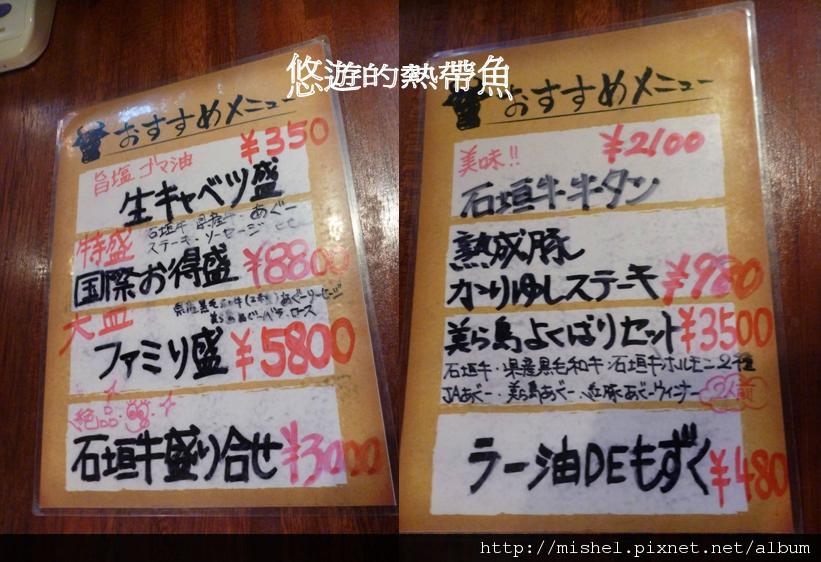 悠遊的熱帶魚
おすすめメニュー
旨塩ゴマ油
¥350
生キャベツ盛
特盛
石垣牛・県産牛・あぐー
ステーキ・ソーセージ
国際お得盛 ¥8800
大盛
ファミリ盛 ¥5800
絶品
石垣牛盛り合せ ¥3000
おすすめメニュー
美味!! ¥2100
石垣牛牛タン
熟成豚
かりゆしステーキ ¥980
美ら島よくばりセット ¥3500
石垣牛・県産黒毛和牛・石垣牛ホルモン2種
JAあぐー・美ら島あぐー・紅豚あぐーウィンナー 2人前
ラー油DEもずく ¥480
http://mishel.pixnet.net/album